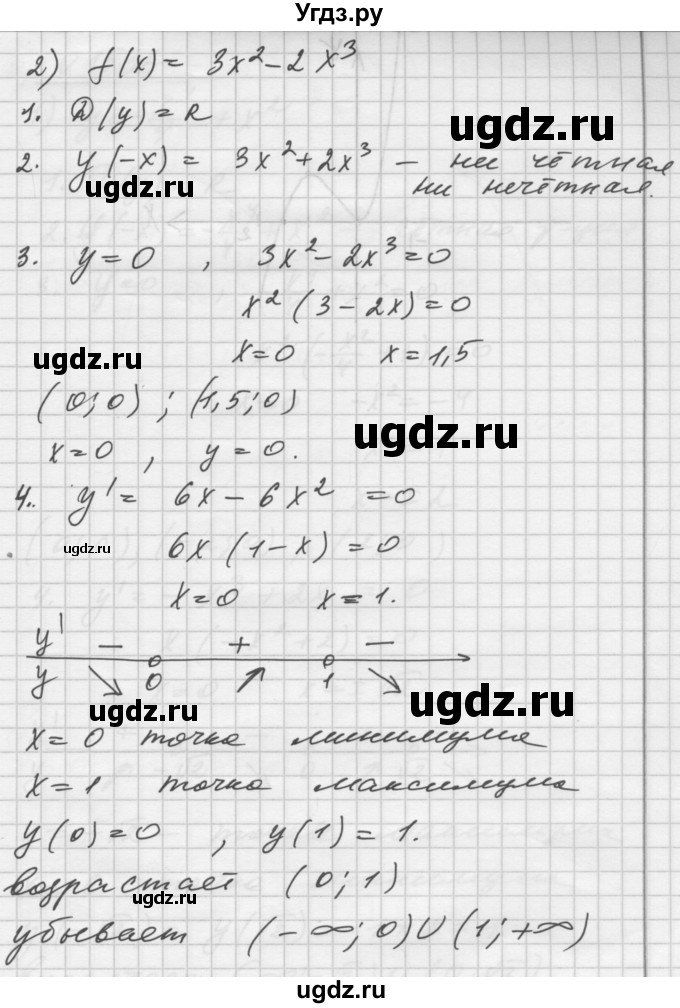 Угдз.ру
2) f(x) = 3x² - 2x³
1. D(y) = R
ugdz.ru
2. y(-x) = 3x² + 2x³ — ни чётная
ugdz.ru
ни нечётная.
3. y = 0 , 3x² - 2x³ = 0
x² (3 - 2x) = 0
ugdz.ru
x = 0 x = 1,5
(0; 0) ; (1,5; 0)
ugdz.ru
x = 0 , y = 0.
4. y' = 6x - 6x² = 0
ugdz.ru
6x (1 - x) = 0
x = 0 x = 1.
y' — + —
y ↘ 0 ↗ 1 ↘
ugdz.ru
ugdz.ru
x = 0 точка минимума
x = 1 точка максимума
y(0) = 0 , y(1) = 1.
возрастает (0; 1)
ugdz.ru
убывает (-∞; 0) ∪ (1; +∞)
ugdz.ru